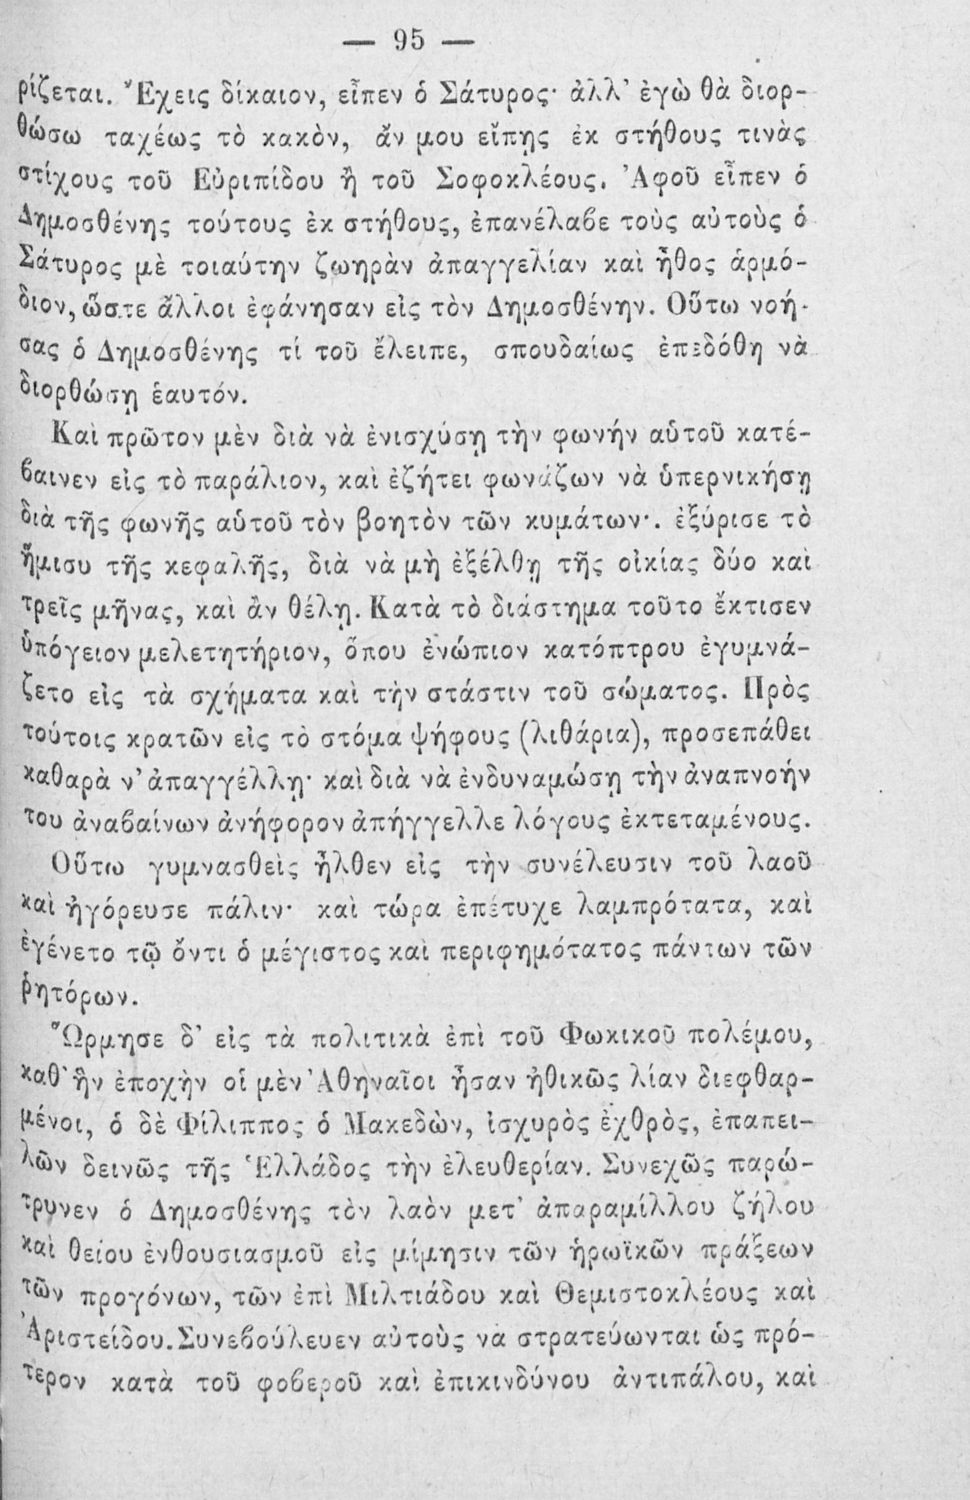 — 95 —
ρίζεται. Ἔχεις δίκαιον, εἶπεν ὁ Σάτυρος· ἀλλ' ἐγὼ θὰ διορ-
θώσω ταχέως τὸ κακὸν, ἄν μου εἴπῃς ἐκ στήθους τινὰς
στίχους τοῦ Εὐριπίδου ἢ τοῦ Σοφοκλέους. Ἀφοῦ εἶπεν ὁ
Δημοσθένης τούτους ἐκ στήθους, ἐπανέλαβε τοὺς αὐτοὺς ὁ
Σάτυρος μὲ τοιαύτην ζωηρὰν ἀπαγγελίαν καὶ ἦθος ἁρμό-
διον, ὥστε ἄλλοι ἐφάνησαν εἰς τὸν Δημοσθένην. Οὕτω νοή-
σας ὁ Δημοσθένης τί τοῦ ἔλειπε, σπουδαίως ἐπεδόθη νὰ
διορθώσῃ ἑαυτόν.
Καὶ πρῶτον μὲν διὰ νὰ ἐνισχύσῃ τὴν φωνήν αὑτοῦ κατέ-
βαινεν εἰς τὸ παράλιον, καὶ ἐζήτει φωνάζων νὰ ὑπερνικήσῃ
διὰ τῆς φωνῆς αὑτοῦ τὸν βοητὸν τῶν κυμάτων·. ἐξύρισε τὸ
ἥμισυ τῆς κεφαλῆς, διὰ νὰ μὴ ἐξέλθῃ τῆς οἰκίας δύο καὶ
τρεῖς μῆνας, καὶ ἂν θέλῃ. Κατὰ τὸ διάστημα τοῦτο ἔκτισεν
ὑπόγειον μελετητήριον, ὅπου ἐνώπιον κατόπτρου ἐγυμνά-
ζετο εἰς τὰ σχήματα καὶ τὴν στάστιν τοῦ σώματος. Πρὸς
τούτοις κρατῶν εἰς τὸ στόμα ψήφους (λιθάρια), προσεπάθει
καθαρὰ ν' ἀπαγγέλλῃ· καὶ διὰ νὰ ἐνδυναμώσῃ τὴν ἀναπνοήν
του ἀναβαίνων ἀνήφορον ἀπήγγελλε λόγους ἐκτεταμένους.
Οὕτω γυμνασθεὶς ἦλθεν εἰς τὴν συνέλευσιν τοῦ λαοῦ
καὶ ἠγόρευσε πάλιν· καὶ τώρα ἐπέτυχε λαμπρότατα, καὶ
ἐγένετο τῷ ὄντι ὁ μέγιστος καὶ περιφημότατος πάντων τῶν
ῥητόρων.
Ὥρμησε δ' εἰς τὰ πολιτικὰ ἐπὶ τοῦ Φωκικοῦ πολέμου,
καθ' ἣν ἐποχὴν οἱ μὲν Ἀθηναῖοι ἦσαν ἠθικῶς λίαν διεφθαρ-
μένοι, ὁ δὲ Φίλιππος ὁ Μακεδὼν, ἰσχυρὸς ἐχθρὸς, ἐπαπει-
λῶν δεινῶς τῆς Ἑλλάδος τὴν ἐλευθερίαν. Συνεχῶς παρώ-
τρυνεν ὁ Δημοσθένης τὸν λαὸν μετ' ἀπαραμίλλου ζήλου
καὶ θείου ἐνθουσιασμοῦ εἰς μίμησιν τῶν ἡρωϊκῶν πράξεων
τῶν προγόνων, τῶν ἐπὶ Μιλτιάδου καὶ Θεμιστοκλέους καὶ
Ἀριστείδου. Συνεβούλευεν αὐτοὺς νὰ στρατεύωνται ὡς πρό-
τερον κατὰ τοῦ φοβεροῦ καὶ ἐπικινδύνου ἀντιπάλου, καὶ